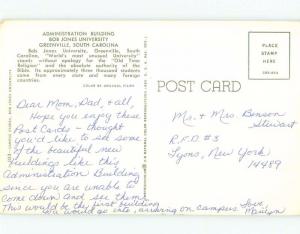 ADMINISTRATION BUILDING
BOB JONES UNIVERSITY
GREENVILLE, SOUTH CAROLINA
Bob Jones University, Greenville, South
Carolina, "World's most unusual University"
stands without apology for the "Old Time
Religion" and the absolute authority of the
Bible. Its approximately three thousand students
come from every state and many foreign
countries.
PLACE
STAMP
HERE
POST CARD
Dear Mom, Dad, & all,
Hope you enjoy these
Post Cards - thought
you'd like to add some
of the beautiful new
buildings like this
Administration Building
since you are unable to
come down and see them
This would be the first building
you would go into, arriving on campus. Love,
Marilyn
Mr. & Mrs. Benson
Stewart
R.F.D #3
Lyons, New York
14489